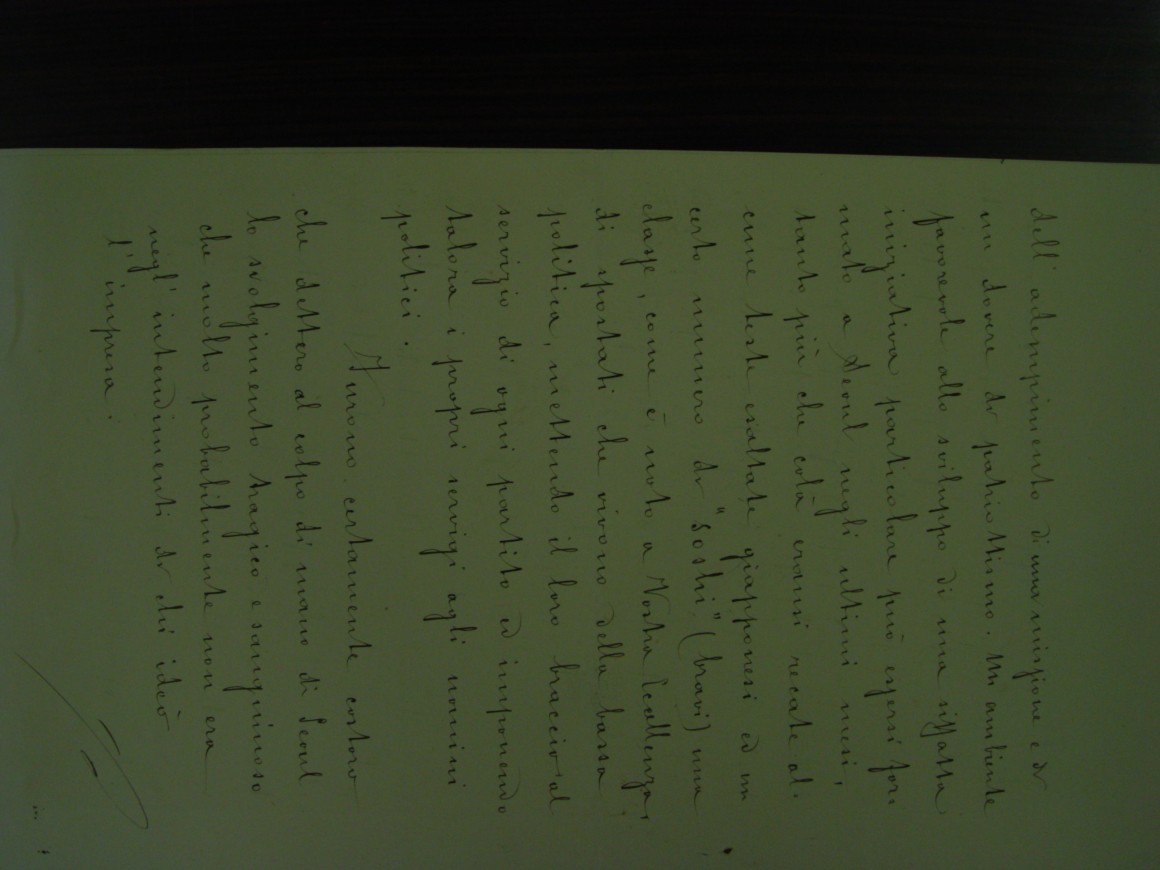 dell' adempimento di una missione e di
un dovere di patriottismo. Un ambiente
favorevole allo sviluppo di una siffatta
iniziativa particolare può essersi for-
mato a Seoul negli ultimi mesi,
tanto più che colà eransi recate al-
cune teste esaltate giapponesi ed un
certo numero di "Soshi" (bravi) una
classe, come è noto a Vostra Eccellenza,
di spostati che vivono della bassa
politica, mettendo il loro braccio al
servizio di ogni partito ed imponendo
talora i propri servigi agli uomini
politici.
Furono certamente costoro
che dettero al colpo di mano di Seoul
lo svolgimento tragico e sanguinoso
che molto probabilmente non era
negl' intendimenti di chi ideò
l' impresa.